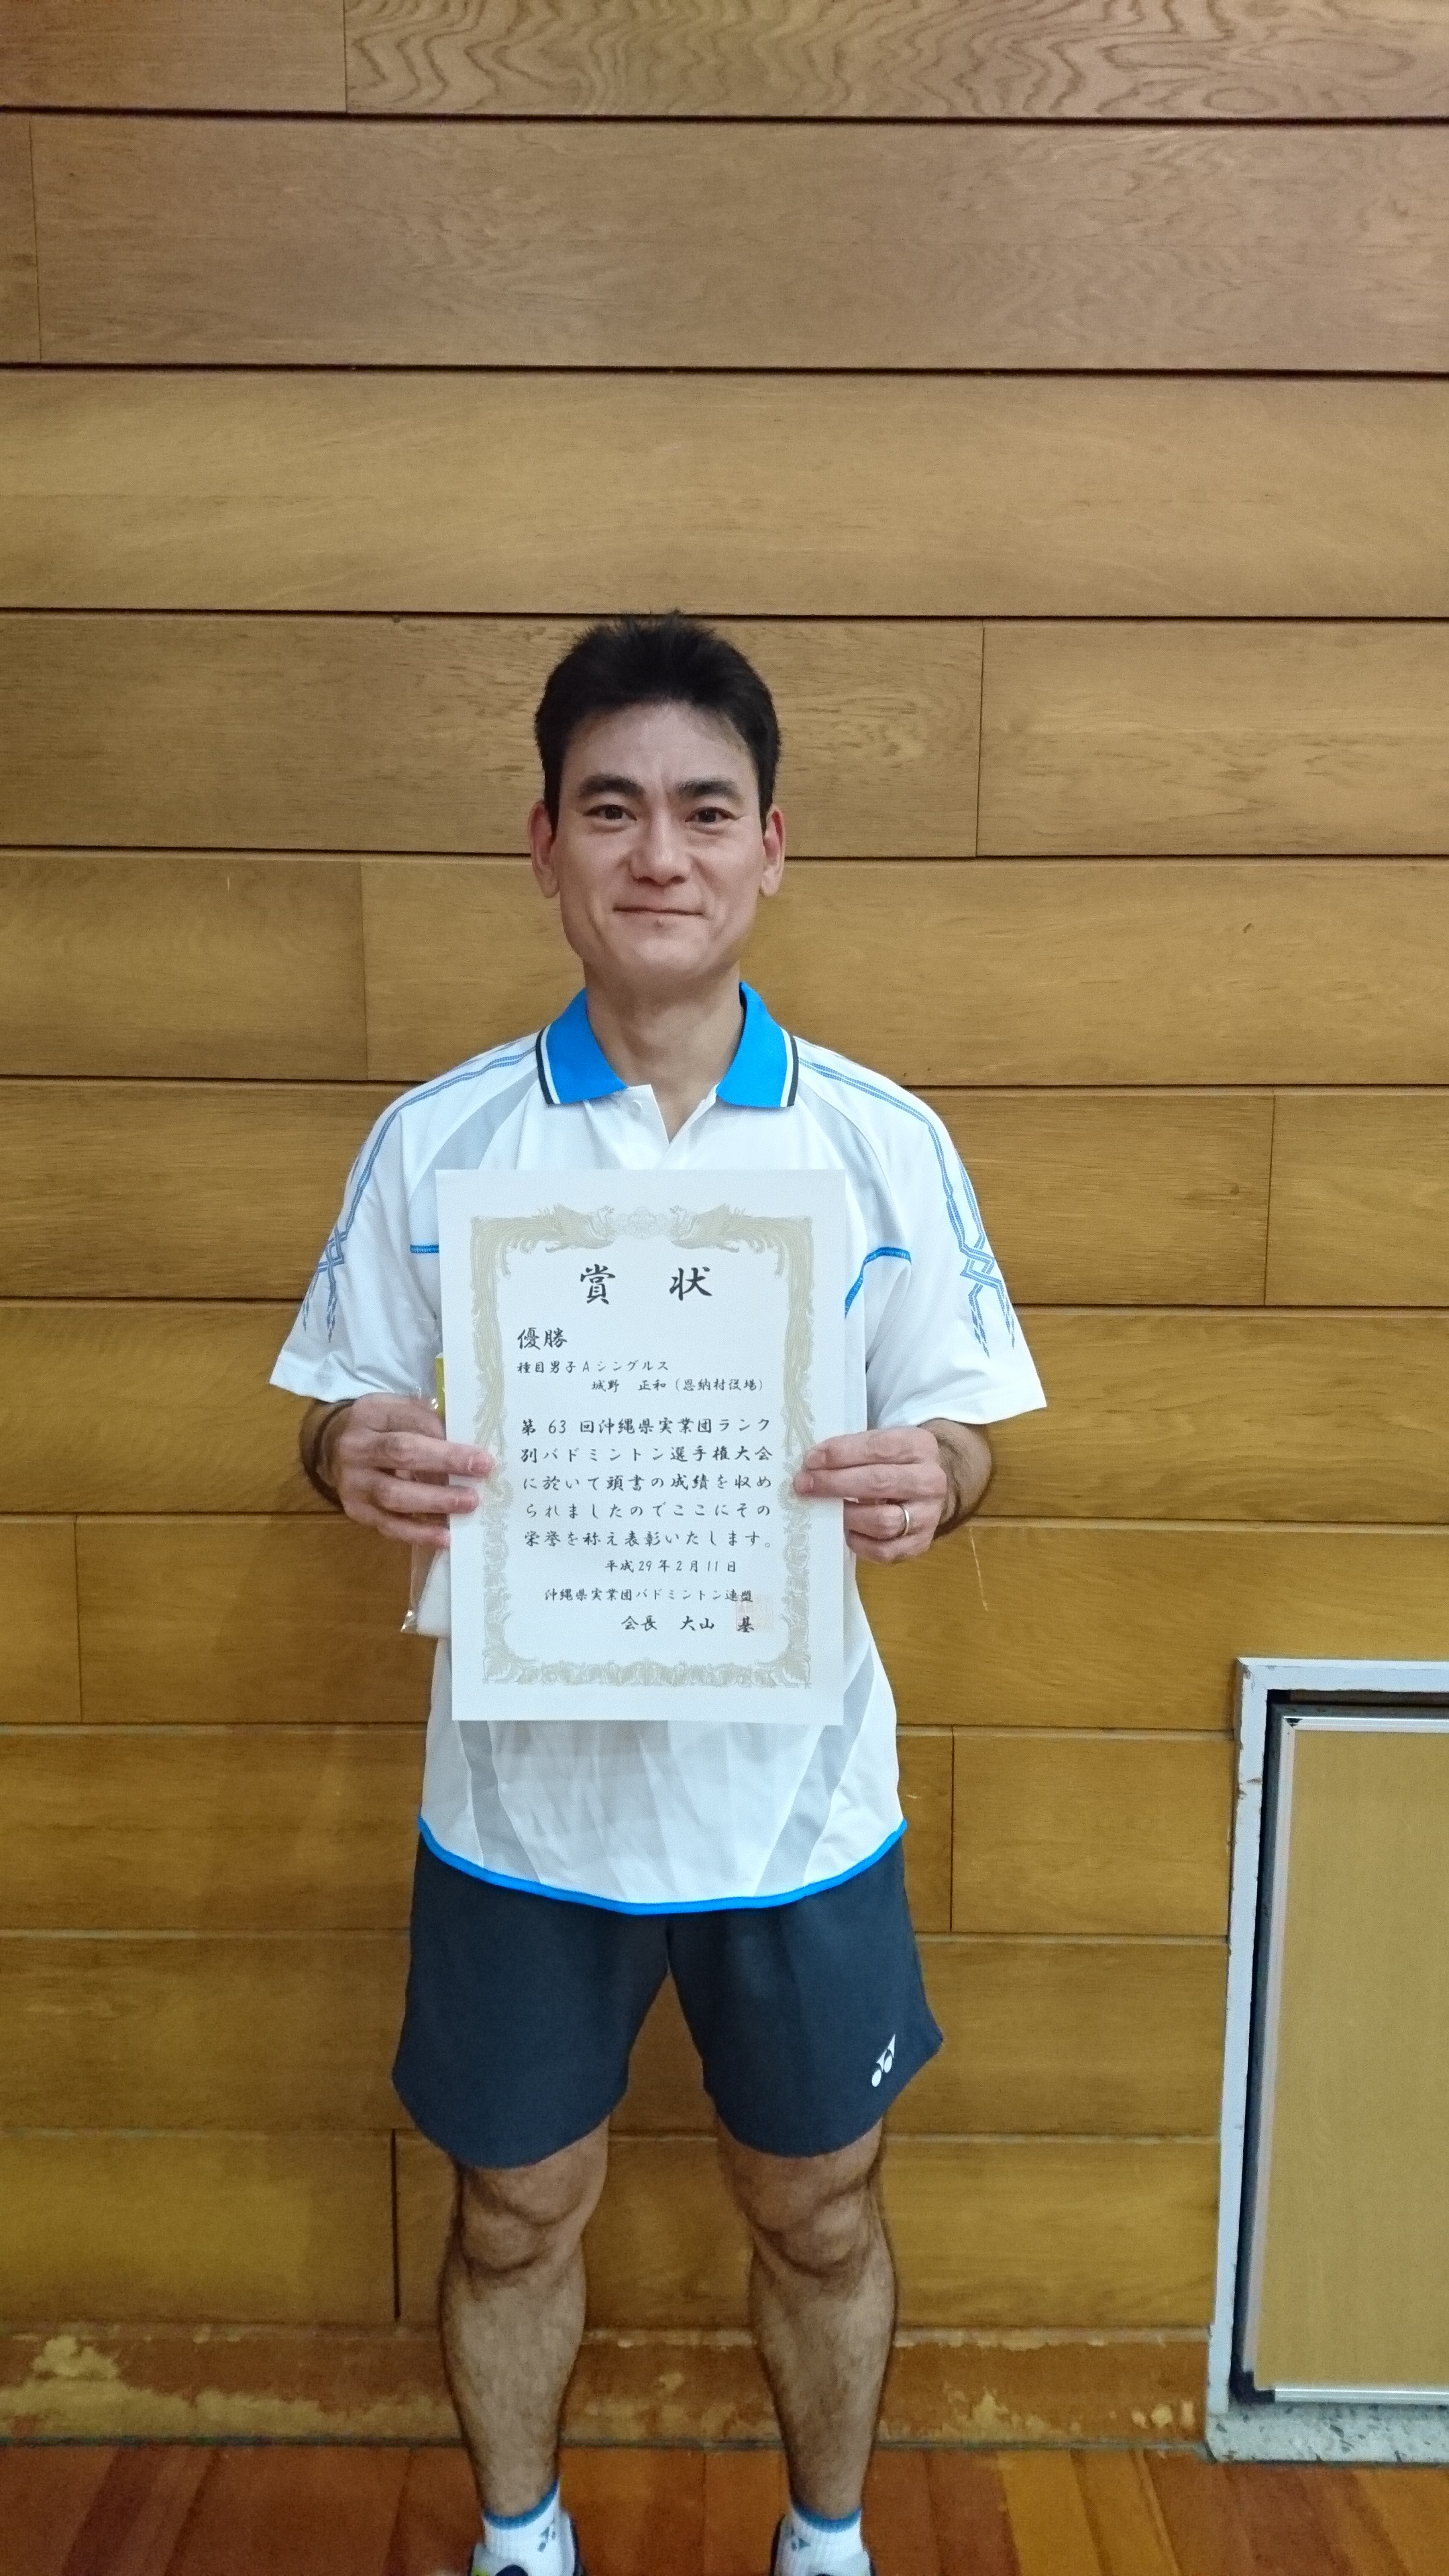 賞 状
優勝
種目男子Aシングルス
城野 正和（恩納村役場）
第 63 回沖縄県実業団ランク
別バドミントン選手権大会
に於いて頭書の成績を収め
られましたのでここにその
栄誉を称え表彰いたします。
平成29年2月11日
沖縄県実業団バドミントン連盟
会長 大山 基